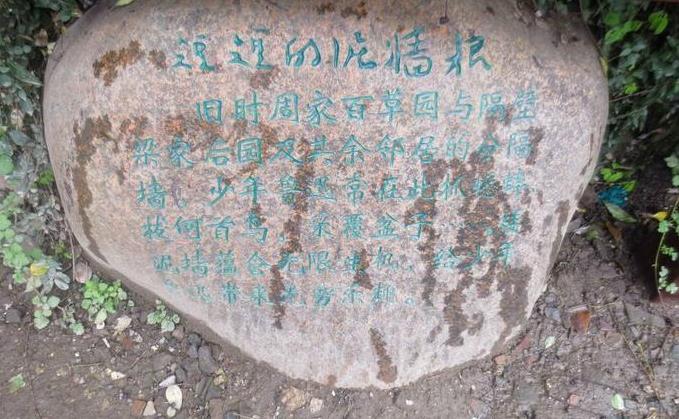 短短的泥墙根
旧时周家百草园与隔壁
梁家后园及其余邻居的分隔
墙。少年鲁迅常在此抓蟋蟀
拔何首乌，采覆盆子……
泥墙蕴含无限生机，给少年
鲁迅带来无穷乐趣。